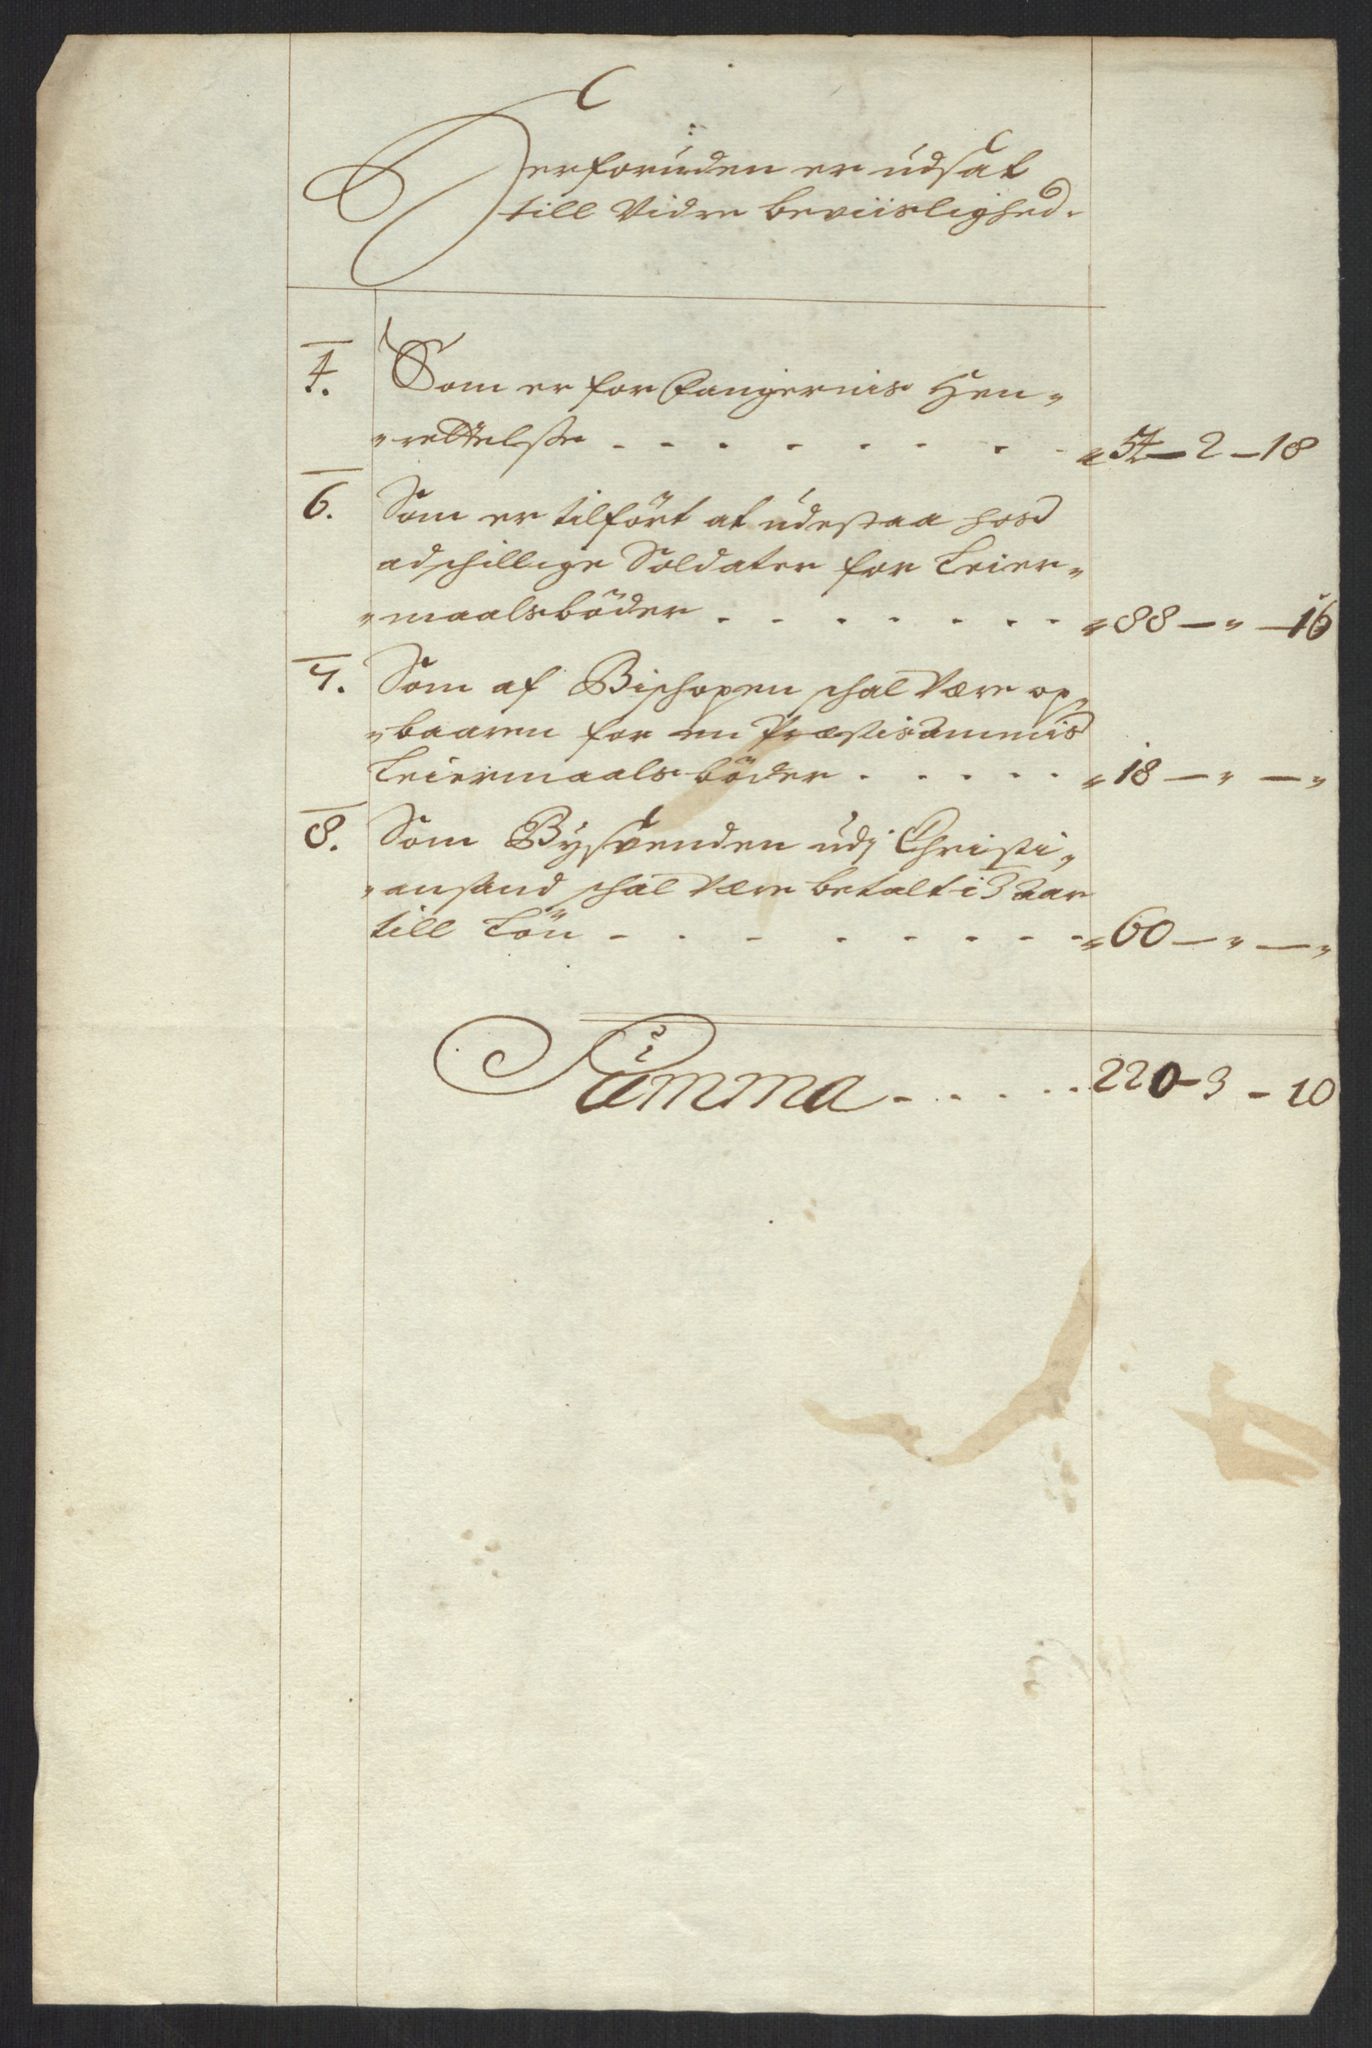 Herforuden er udsat
till Vidre beviislighed.
4. Som er for Fangernis Hen„
„rettelsse - - - - - - - - „54 — 2 — 18
6. Som er tilfört at udestaa hos
adschillige Soldater for Leier„
„maalsböder - - - - - - - „88 — „ — 16
7. Som af Bischopen schal Være op„
„baaren for en Præstis ammis
Leiermaals böder - - - - - „18 — „ — „
8. Som Bysvenden udj Christi„
„ansand schal Være betalt i 3 aar
till Lön - - - - - - - - „60 — „ — „
Summa - - - - - 220 - 3 - 10